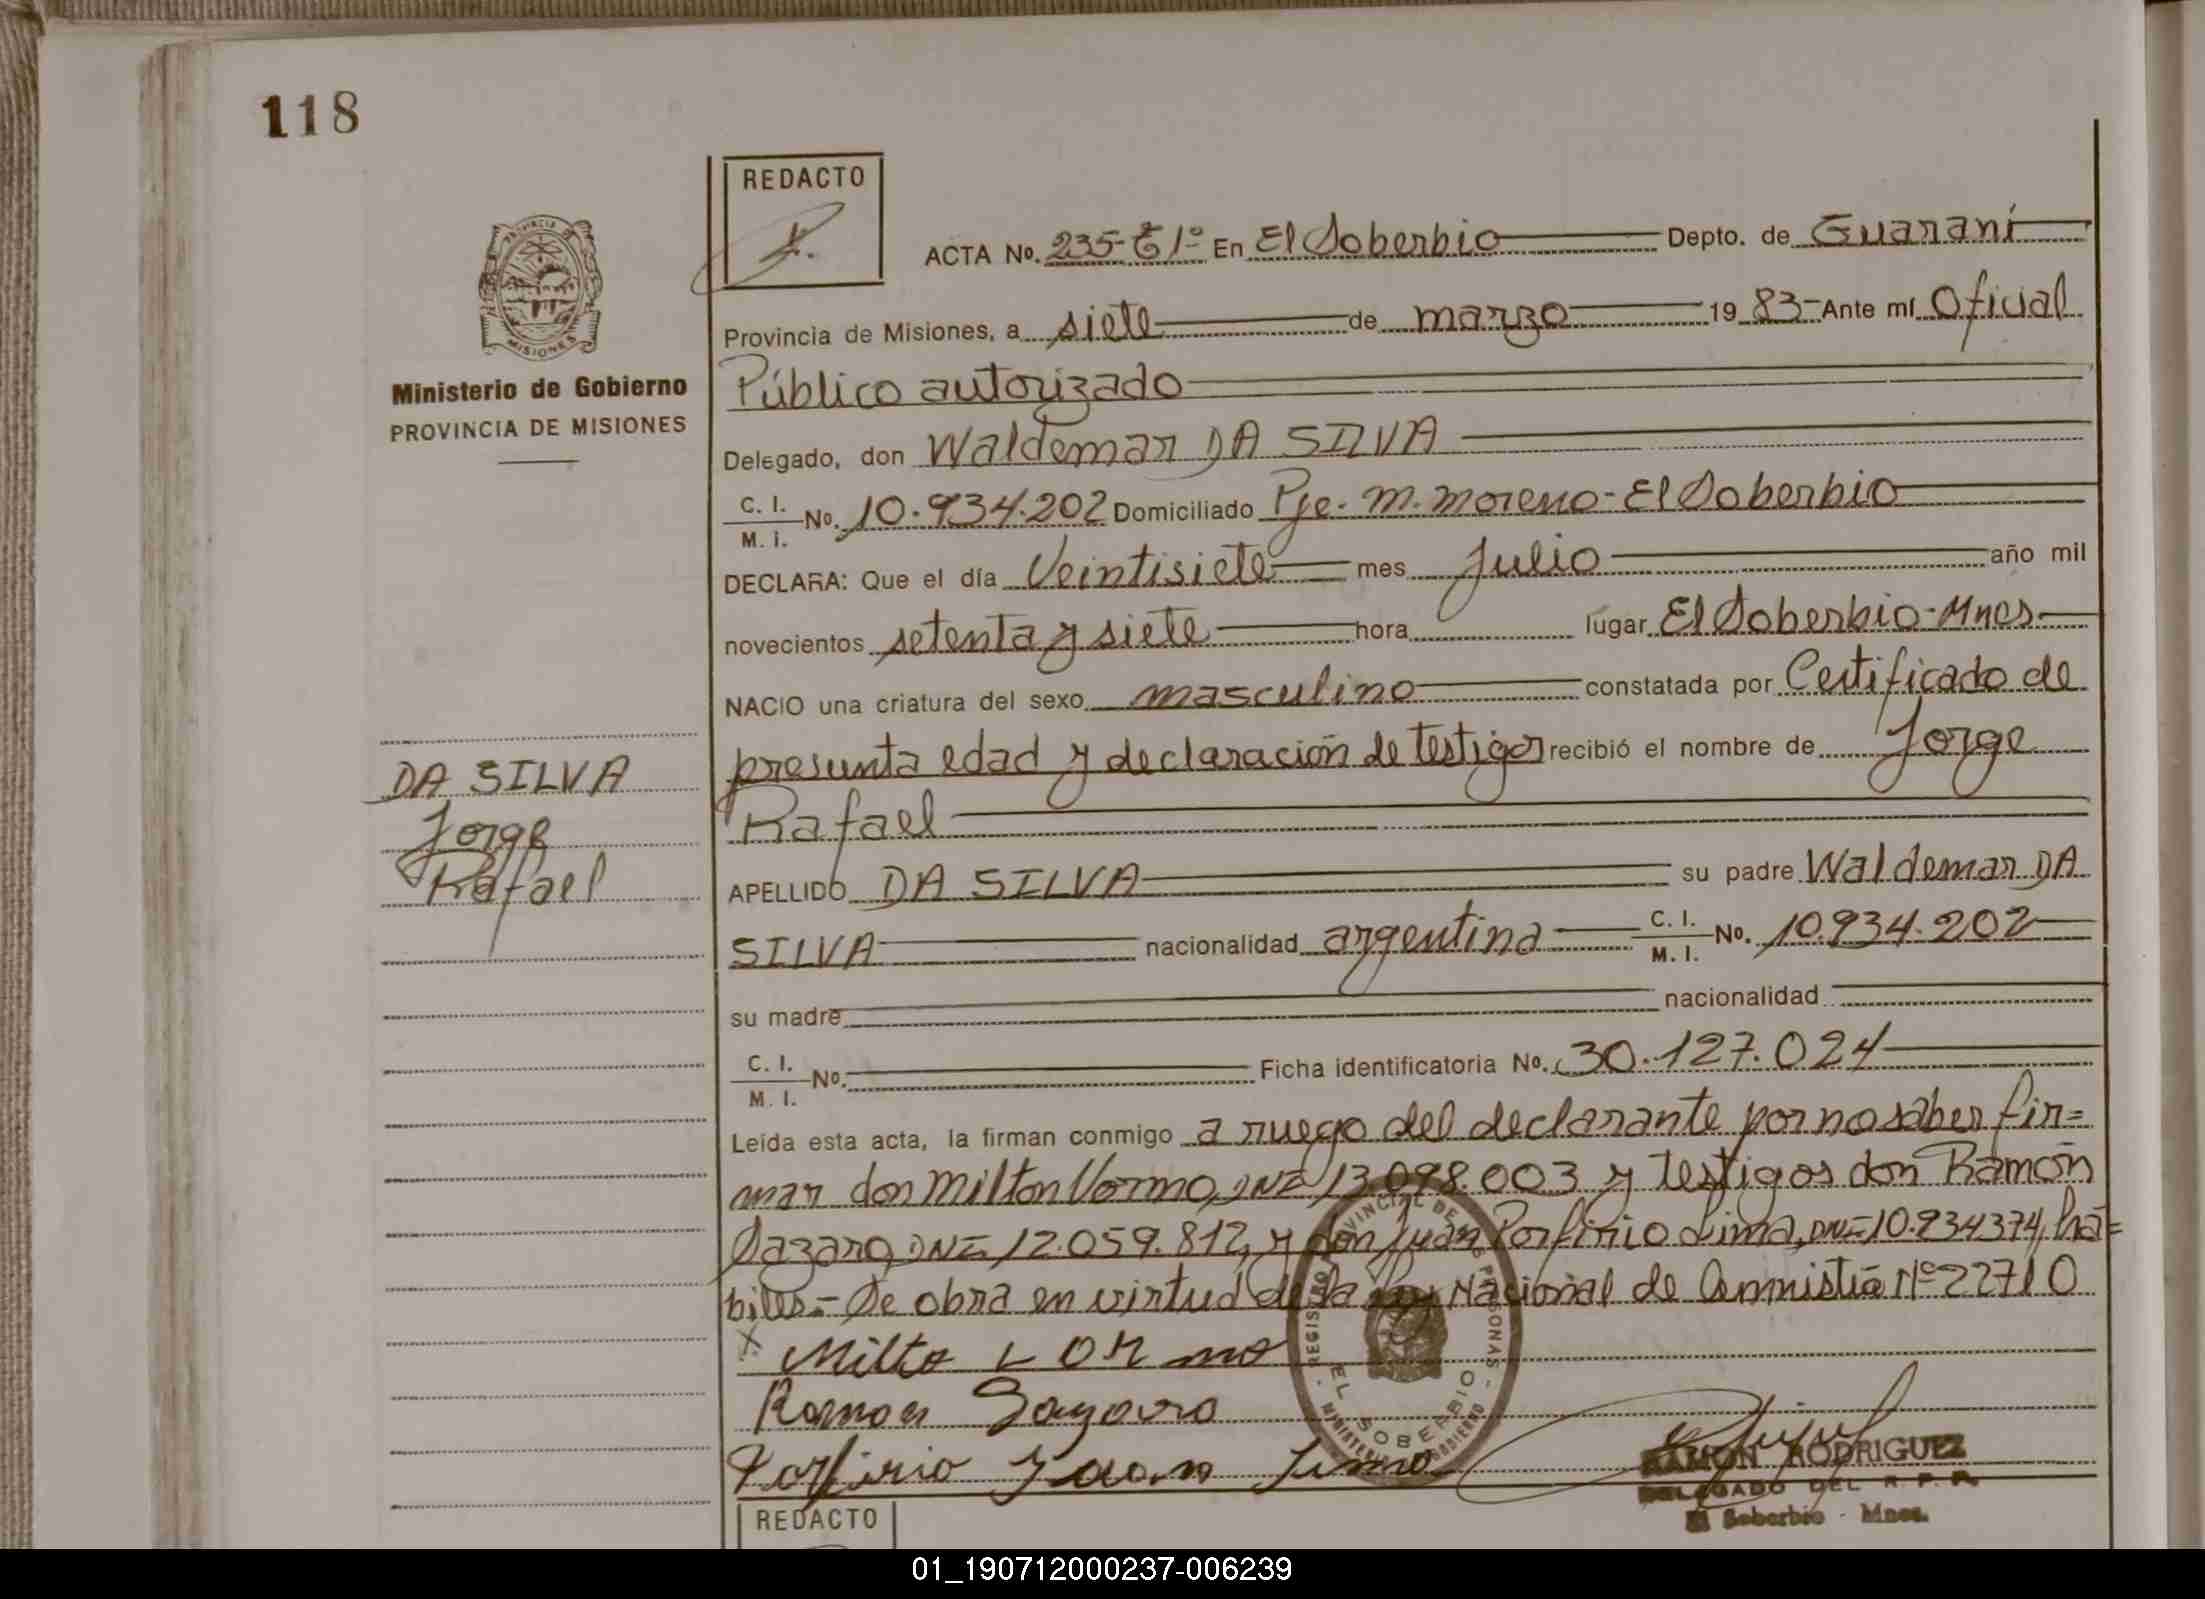 118
REDACTO
ACTA No. 235-T 1º En El Soberbio Depto. de Guaraní
Provincia de Misiones, a siete de marzo 19 83 Ante mí Oficial
Público autorizado
Delegado, don Waldemar DA SILVA
C. I.
M. I. No. 10.934.202 Domiciliado Pje. M. Moreno - El Soberbio
DECLARA: Que el día Veintisiete mes Julio año mil
novecientos setenta y siete hora lugar El Soberbio - Mnes
NACIO una criatura del sexo masculino constatada por Certificado de
presunta edad y declaración de testigos recibió el nombre de Jorge
Rafael
APELLIDO DA SILVA su padre Waldemar DA
SILVA nacionalidad argentina C. I.
M. I. No. 10.934.202
su madre nacionalidad
C. I.
M. I. No. Ficha identificatoria No. 30.127.024
Leída esta acta, la firman conmigo a ruego del declarante por no saber fir=
mar don Milton Lormo, DNI 13.098.003 y testigos don Ramón
Sazaro, DNI 12.059.812, y don Juan Porfirio Lima, DNI 10.934374, há=
biles.- Se obra en virtud de la Ley Nacional de Amnistía Nº 22710
Milto LORmo
Ramon
Porfirio Juan Lima
REGISTRO PROVINCIAL DE LAS PERSONAS
EL SOBERBIO
MINISTERIO DE GOBIERNO
RAMON RODRIGUEZ
DELEGADO DEL R. P. P.
El Soberbio - Mnes.
PROVINCIA DE
MISIONES
Ministerio de Gobierno
PROVINCIA DE MISIONES
DA SILVA
Jorge
Rafael
REDACTO
01_190712000237-006239